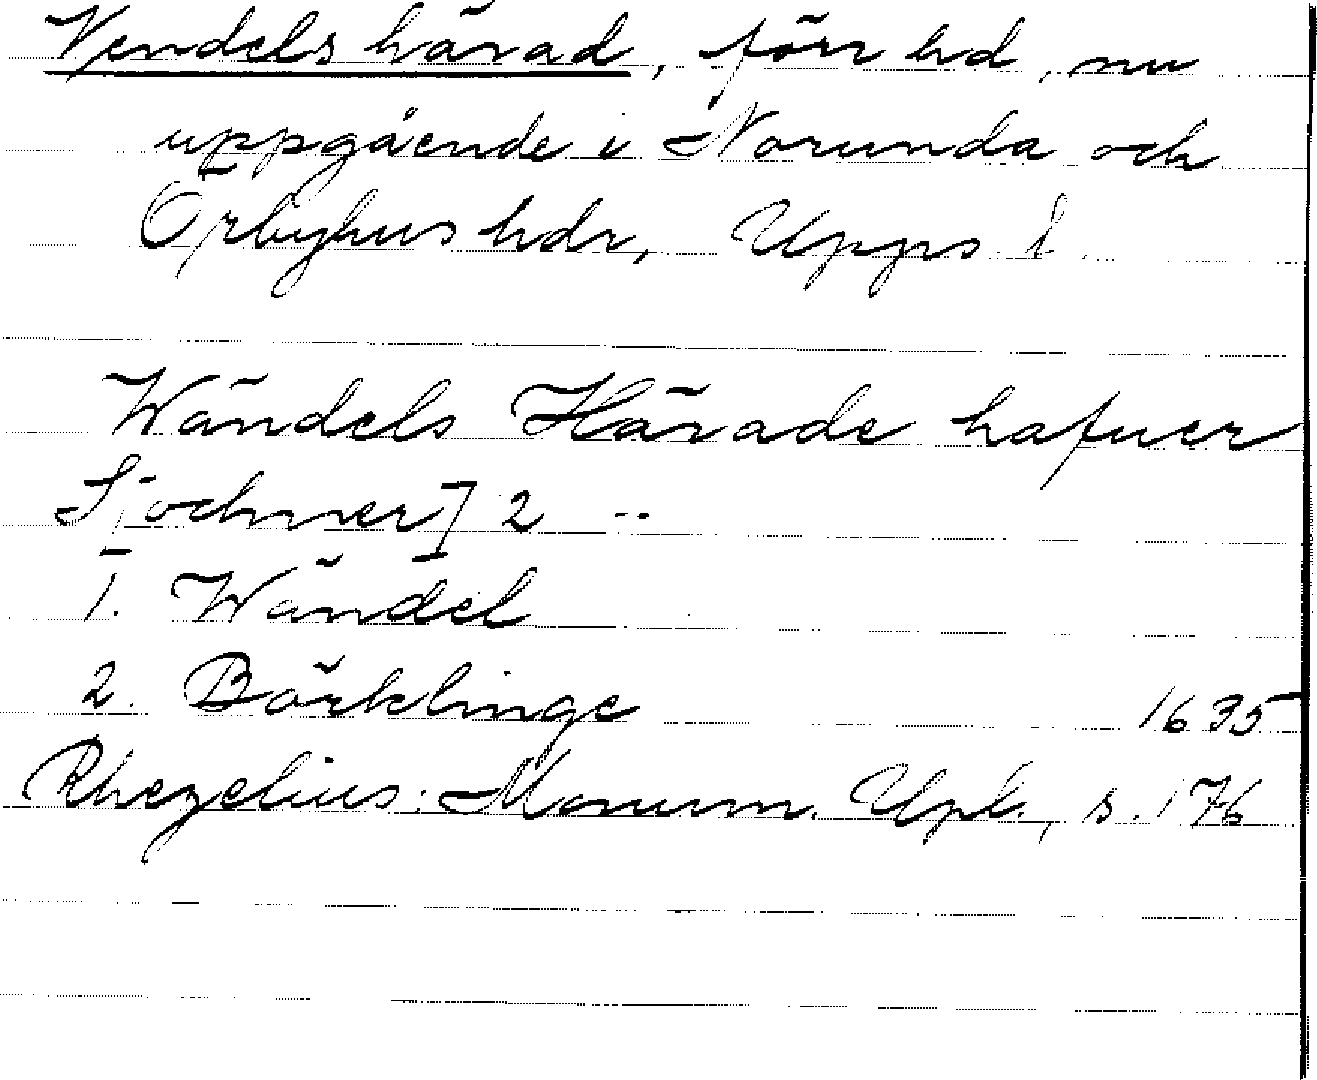 Vendels härad, förr hd, nu
uppgående i Norunda och
Örbyhus hdr, Upps l.
Wändels Härade hafuer
S[ochner] 2 --
1. Wändel
2. Bäcklinge 1635
Rhezelius: Monum. Upl., s. 176